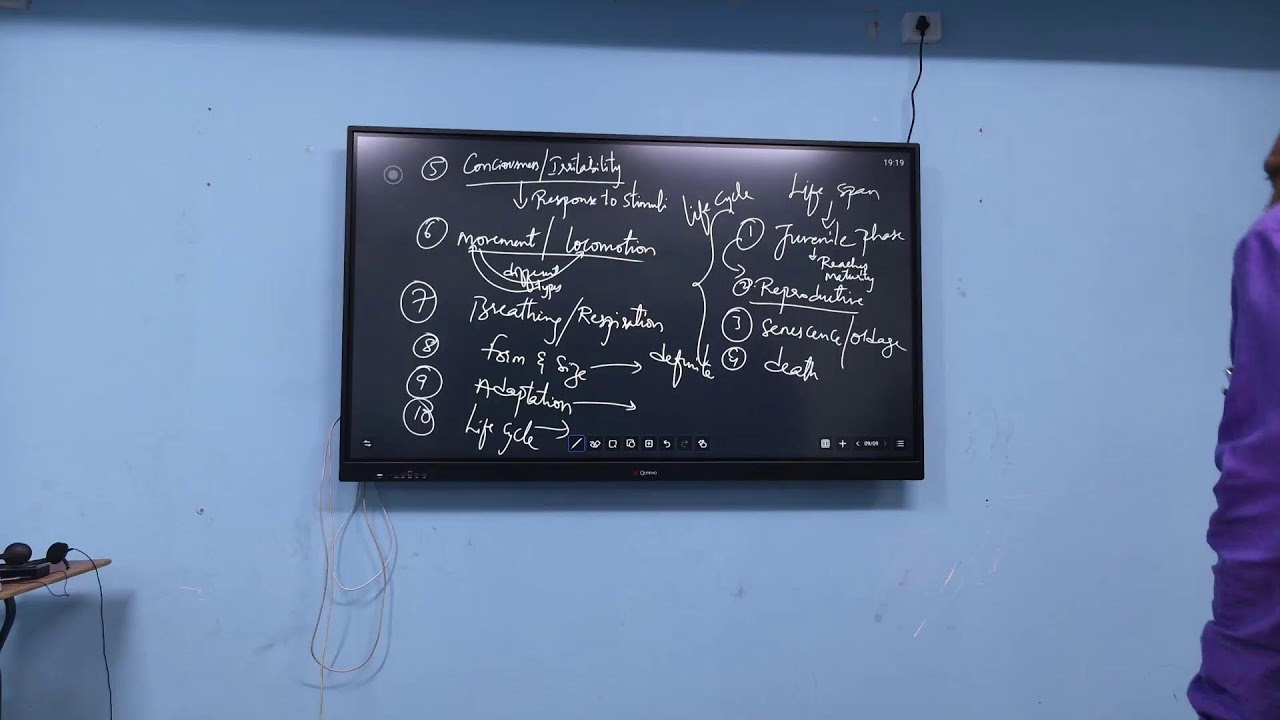 19:19
⑤ Conciousness/Irritability
↓ Response to Stimuli
⑥ Movement / Locomotion
different
types
⑦ Breathing/Respiration
⑧ form & Size → definite
⑨ Adaptation →
⑩ Life Cycle →
Life Cycle
Life Span
↓
① Juvenile phase
↓ Reaches
maturity
② Reproductive
③ Senescence/oldage
④ death
09/09